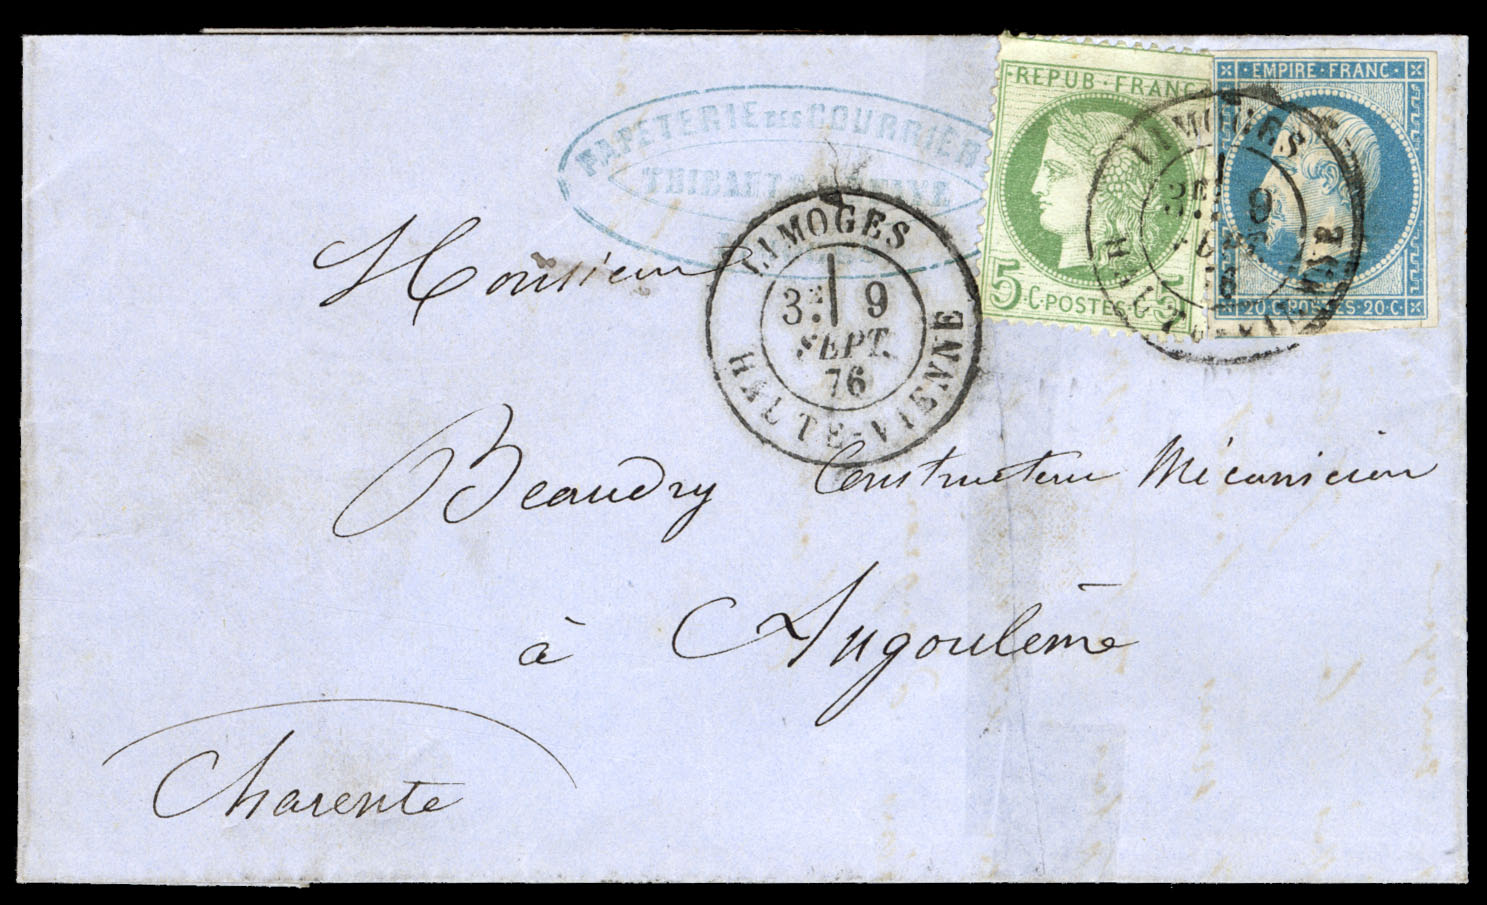 REPUB·FRANC
EMPIRE·FRANC
5·C·POSTES·5
20·C·POSTES·20·C
PAPETERIE DES COURRIER
THIBAUT
LIMOGES
3E 9
SEPT.
76
HAUTE-VIENNE
LIMOGES
3E 9
SEPT.
76
HAUTE-VIENNE
Monsieur
Beaudry Constructeur Mécanicien
à Angoulême
Charente